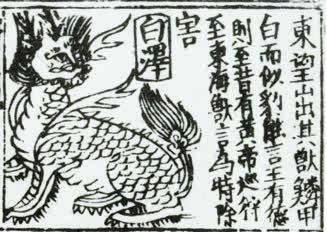 東望山出其獸鱗甲
白而似豹能言王有德
則至昔有黃帝巡狩
至東海獸言為特除
害
白澤